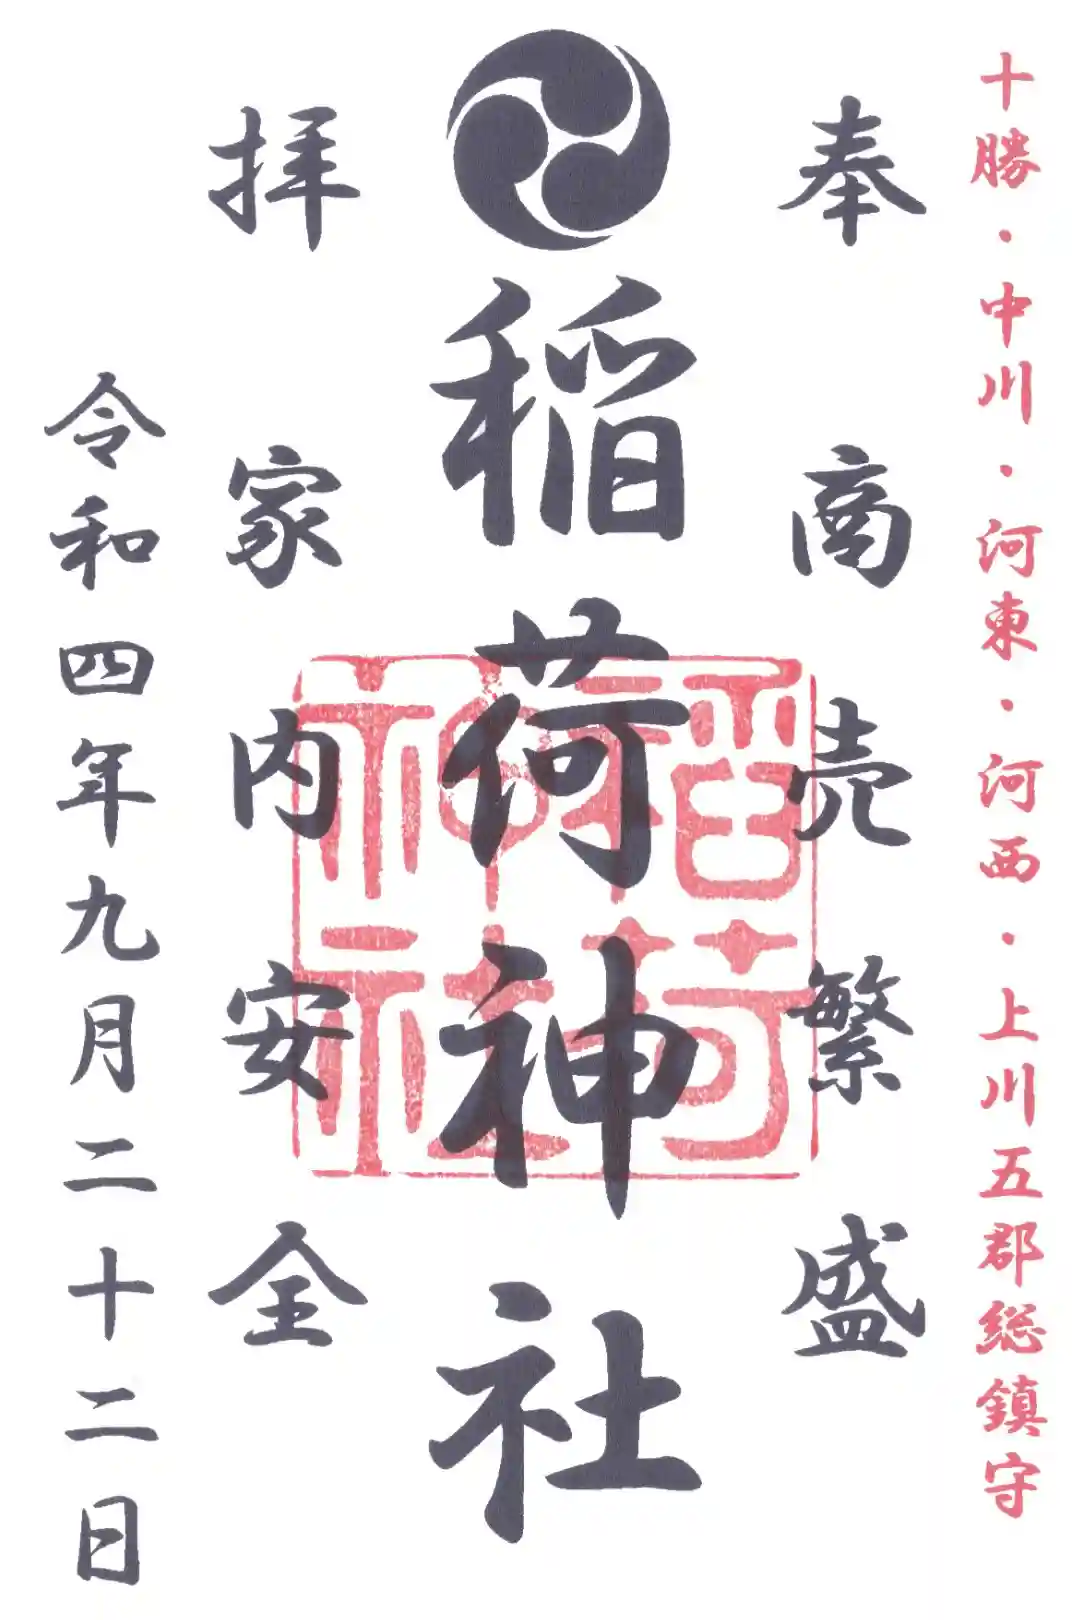 十勝・中川・河東・河西・上川五郡総鎮守
奉
商売繁盛
稲荷神社
稲荷神社
拝
家内安全
令和四年九月二十二日